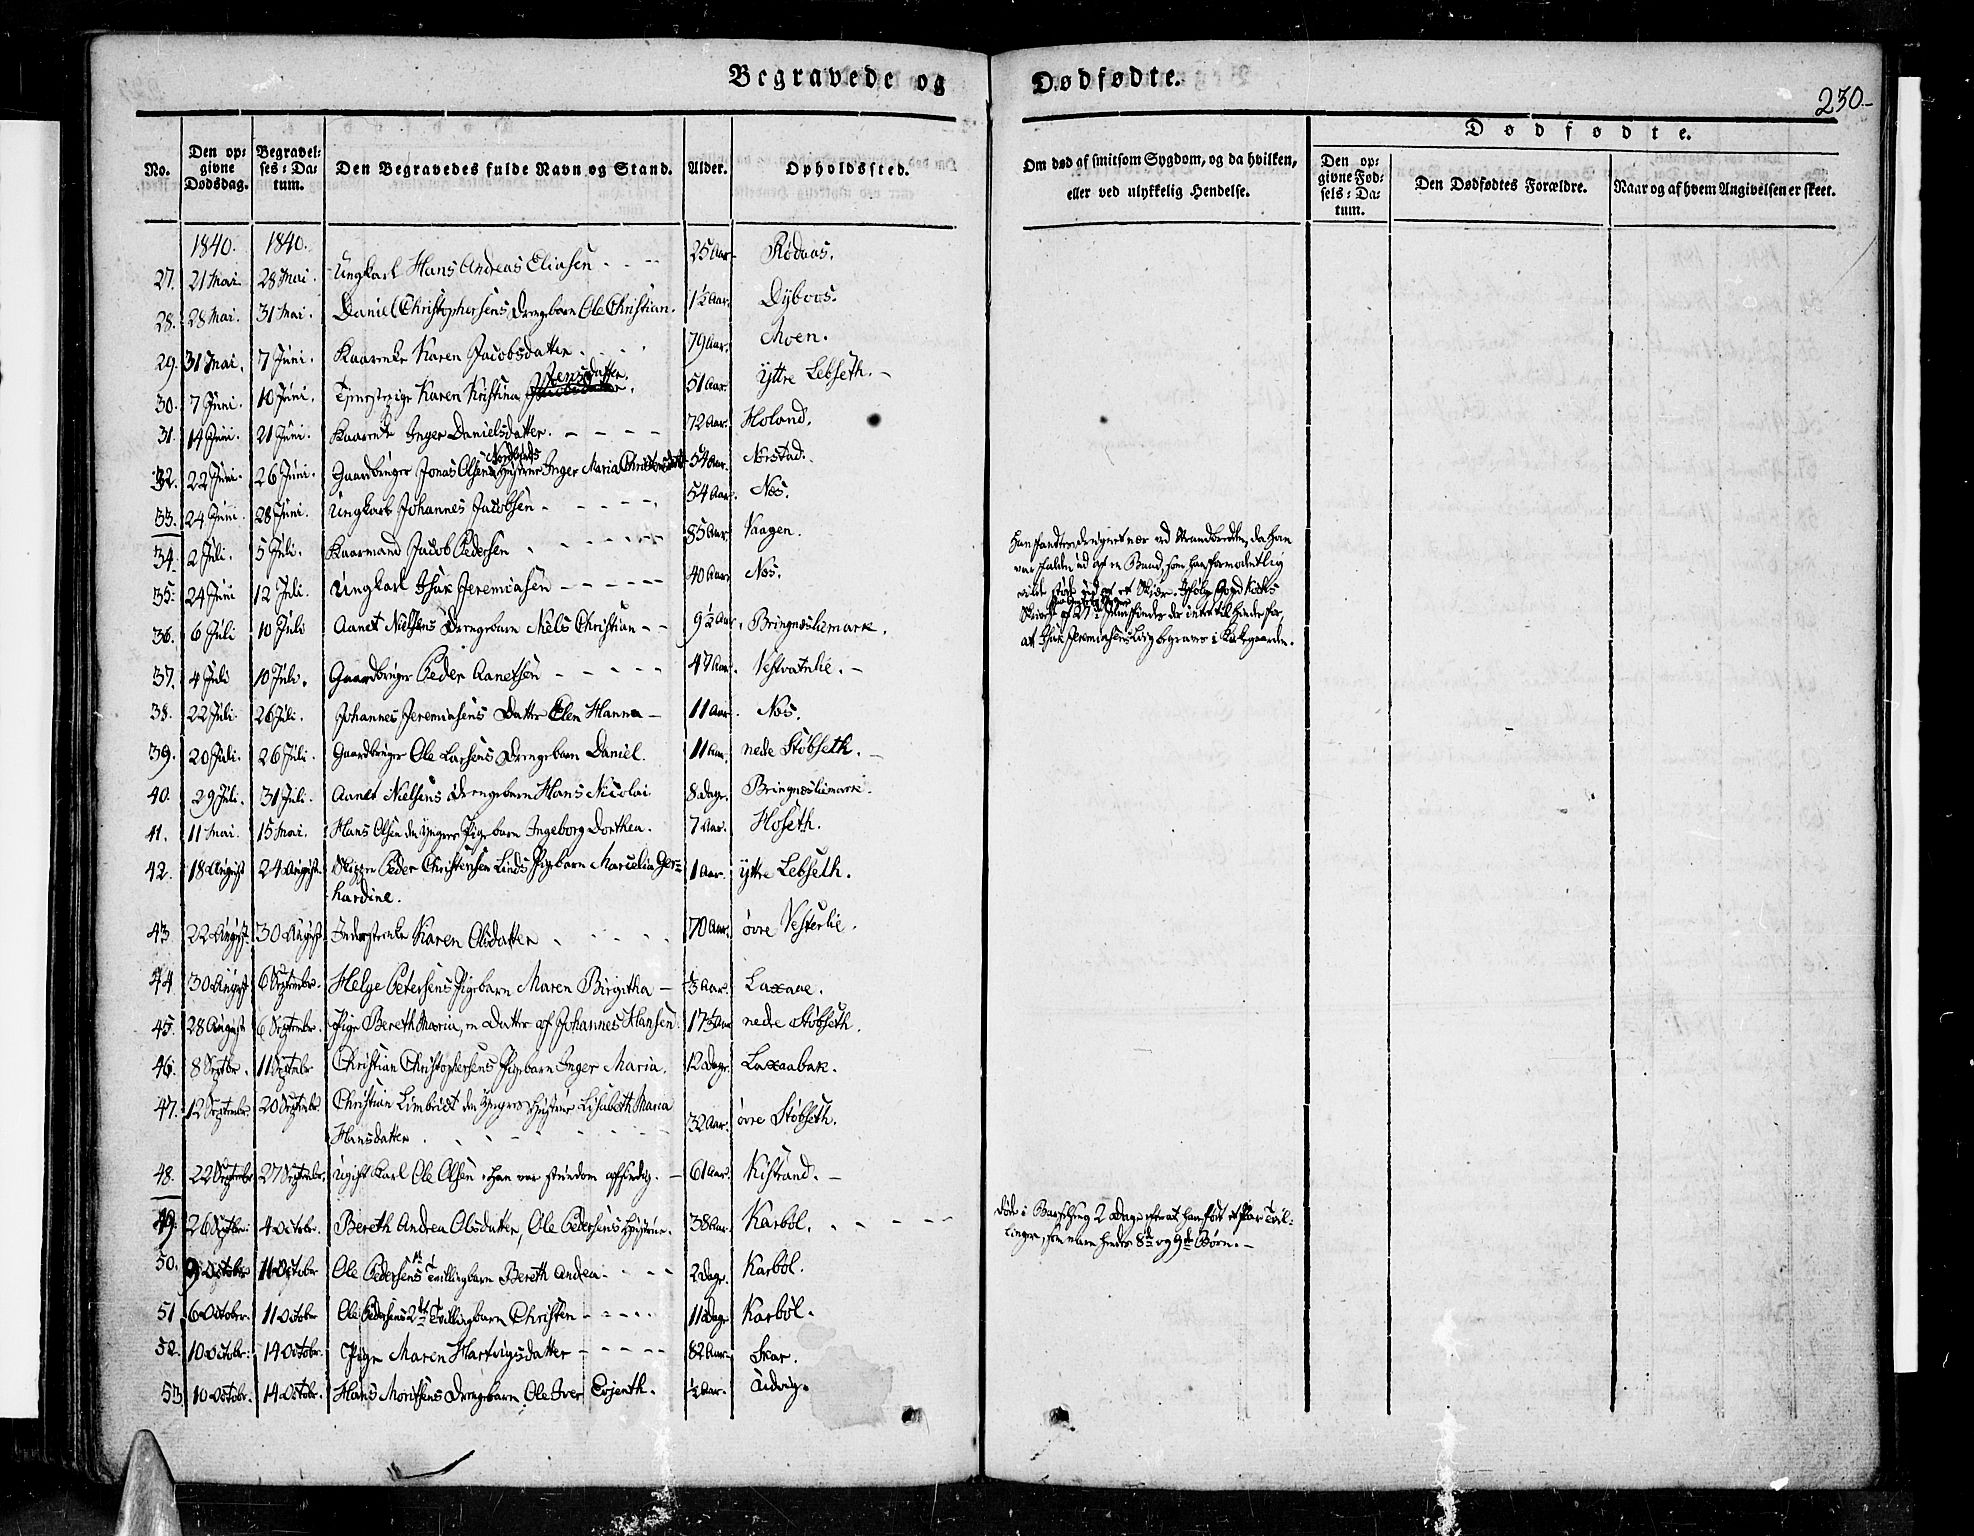 Begravede og Dødfødte.
230.
No. Den opgivne Dødsdag. Begravelses-Datum. Den Begravedes fulde Navn og Stand. Alder. Opholdssted. Om død af smitsom Sygdom, og da hvilken, eller ved ulykkelig Hendelse.
Dødfødte.
Den opgivne Fødsels-Datum. Den Dødfødtes Forældre. Naar og af hvem Angivelsen er skeet.
1840. 1840.
27. 21 Mai 28 Mai. Ungkarl Hans Andreas Eliasen 25 Aar. Rødaas.
28. 28 Mai. 31 Mai. Daniel Christophersens Drengebarn Ole Christian. 1½ Aar. Dybvos.
29. 31 Mai. 7 Juni. Kaarenke Karen Jacobsdatter 79 Aar. Moen.
30. 7 Juni. 10 Juni. Karen Kristina Jensdatter. 51 Aar. Yttre Lebseth.
31. 14 Juni. 21 Juni. Kaarenke Inger Danielsdatter. 72 Aar. Holand.
32. 22 Juni. 26 Juni. Gaardbruger Jonas Olsens Hustrue Inger Maria 54 Aar. Nerstad.
33. 24 Juni. 28 Juni. Ungkarl Johannes Jacobsen 54 Aar. Næs.
34. 2 Juli. 5 Juli. Kaarmand Jacob Pedersen 85 Aar Vaagen.
35. 24 Juni 12 Juli. Ungkarl Isak Jeremiasen 40 Aar. Næs.
Han fandtes nær ved Strandbredden, da han
var falden ud af en Baad, som han formodentlig
vilde støde ud af et Skiær.
finder der intet til Hinder for,
at Isak Jeremiasens Liig begraves i Kirkegaarden.
36. 6 Juli 10 Juli Aanet Nielsens Drengebarn Niels Christian 9½ Aar. Bringnesliemark.
37. 4 Juli 10 Juli. Gaardbruger Peder Aanetsen 47 Aar. Vestvatnlie.
38. 22 Juli. 26 Juli. Johannes Jeremiasens Datter Elen Hanna 11 Aar. Næs.
39. 20 Juli. 26 Juli. Gaardbruger Ole Larsens Drengebarn Daniel. 11 Aar. nedre Støbseth.
40. 29 Juli. 31 Juli. Aanet Nielsens Drengebarn Hans Nicolai 8 Dage. Bringnesliemark.
41. 11 Mai. 15 Mai. Hans Olsen den Yngres Pigebarn Ingeborg Dorthea. 7 Aar. Hoseth.
42. 18 August 24 August. Skipper Peder Christensen Linds Pigebarn Marcelia Ger-
hardine. 1 Aar. yttre Lebseth.
43 22 August. 30 August. Inderstenke Karen Olsdatter 70 Aar. øvre Vesterlie.
44 30 August 6 September. Helge Petersens Pigebarn Maren Birgitha ⅓ Aar. Laxaae.
45. 28 August 6 September. Pige Bereth Maria, en Datter af Johannes Hansen. 17½ Aar nedre Støbseth.
46. 8 Septbr. 11 Septembr Christian Christophersens Pigebarn Inger Maria. 12 Dage. Laxaabak.
47. 12 Septembr. 20 Septembr. Christian Limbriet den Yngres Hustrue Lisabeth Maria
Hansdatter. 32 Aar. øvre Støbseth.
48. 22 Septembr 27 Septembr. Ugift Karl Ole Olsen. Han var stundom affindig. 61 Aar. Kistrand.
49. 26 Septbr. 4 Octobr. Bereth Andrea Olsdatter, Ole Pedersens Hustrue. 38 Aar. Karbøl.
døde i Barselseng 2 Dage efter at have født et Par Tvil-
linger, som vare hendes 8de og 9de Børn.
50. 9 October 11 Octobr Ole Pedersens 1st Tvillingbarn Bereth Andrea 2 Dage. Karbøl.
51 6 October. 11 Octobr Ole Pedersens 2det Tvillingbarn Christen 11 Dage Karbøl.
52. 10 Octobr. 14 Octobr. Pige Maren Hartvigsdatter 82 Aar. Skar.
53. 10 Octobr. 14 Octobr. Hans Moritsens Drengebarn Ole Iver Evjenth. ½ Aar. Ludvig.